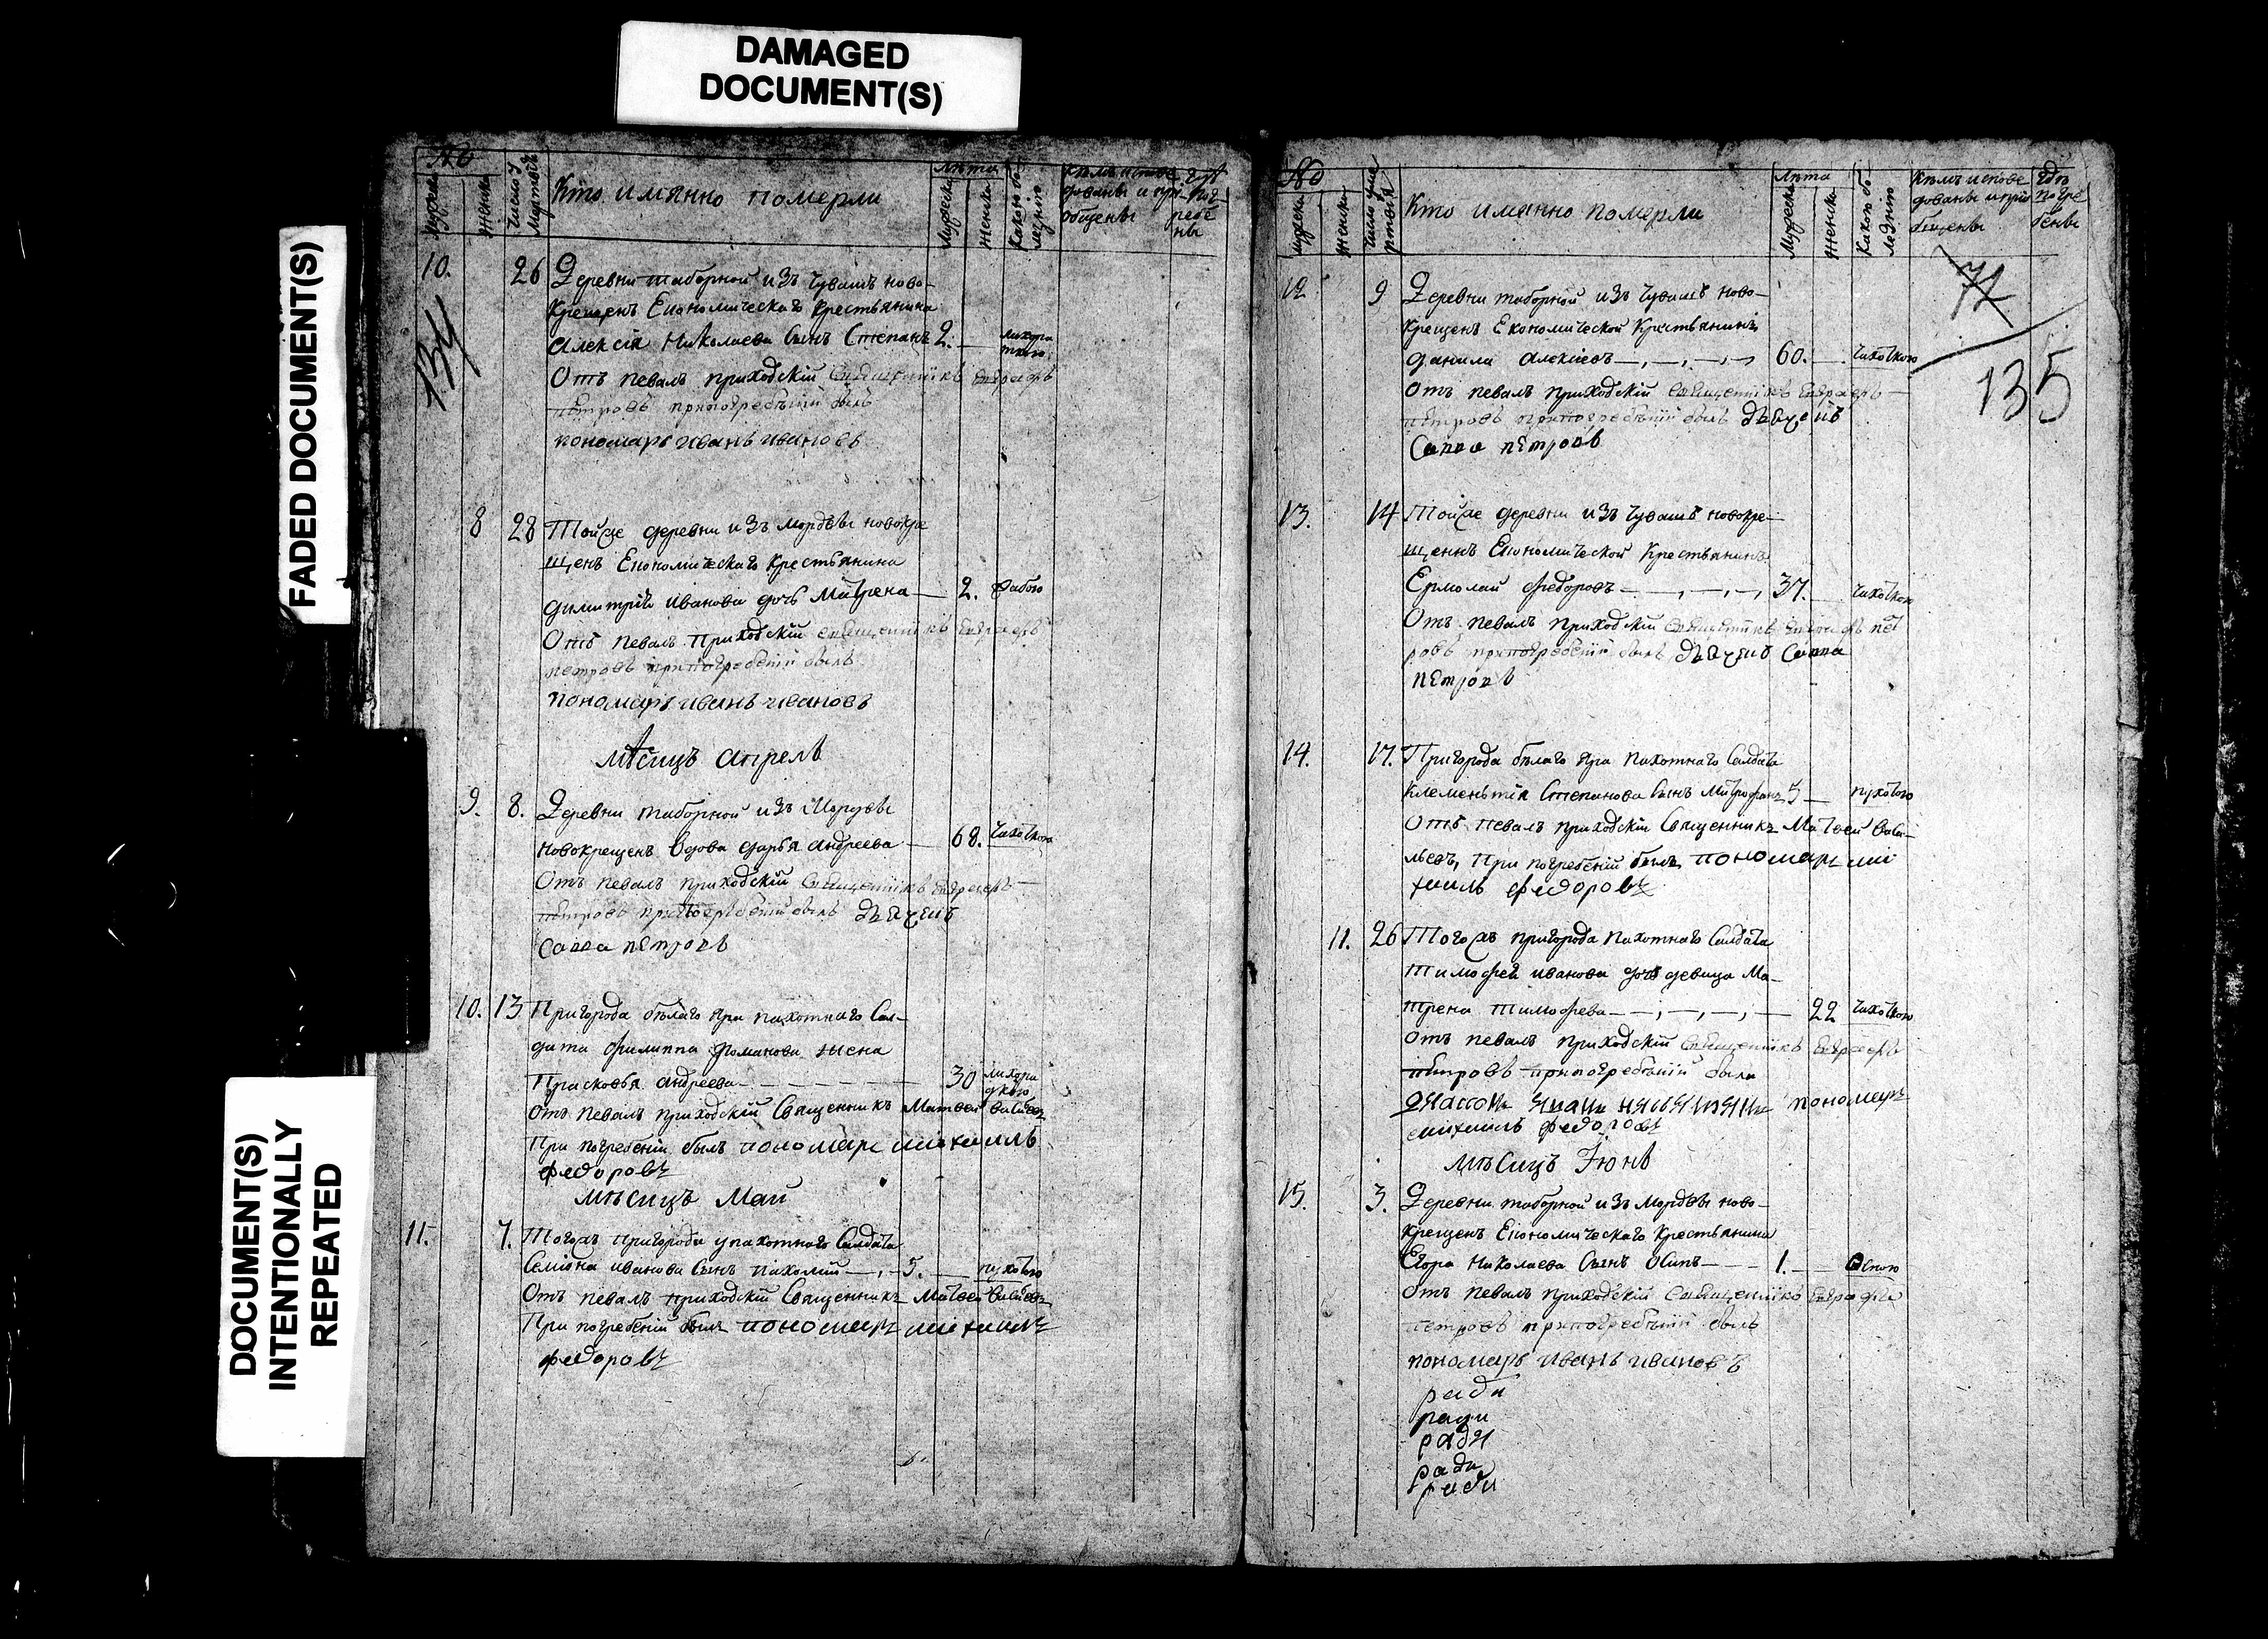 DAMAGED
DOCUMENT(S)
FADED DOCUMENT(S)
DOCUMENT(S)
INTENTIONALLY
REPEATED
№
Мужеска
Женска
Число
Кто имянно померли
Лѣта
Мужеска
Женска
Какою бо-
лезнію
Кемъ испове-
дованы и при-
общены
где
пог-
ребе
ны
134
10. 26 Деревни таборной изъ Чувашъ ново-
крещенъ Економическаго крестьянина
Алексѣя Николаева Сынъ Степанъ 2. — лихора
ткою
Отъ певалъ приходскiй священникъ Евграфъ
петровъ припогребенiй былъ
пономарь иванъ ивановъ
8 28 Тойже деревни изъ мордвы новокре
щенъ Економическаго Крестьянина
димитрiя Иванова дочь Матрена — 2. Рабою
Отъ певалъ приходскiй священникъ Евграфъ
петровъ припогребенiй былъ
пономарь иванъ ивановъ
мѣсяцъ апрель
9. 8. Деревни таборной изъ Мордвы
новокрещенъ Вдова дарья андреева — 68. чахоткою
Отъ певалъ приходскiй священникъ Евграфъ
петровъ припогребенiй былъ дьячекъ
Савва петровъ
10. 13 Пригорода бѣлаго Яра пахотнаго Сол-
дата филиппа Романова жена
Прасковья андреева — 30 лихора
дкою
отъ певалъ приходскiй Священникъ Матвей Васильевъ
При погребенiи былъ пономарь михаилъ
федоровъ
мѣсяцъ Май
11. 7. Тогожъ пригорода пахотнаго Салдата
Семiона иванова Сынъ пахомiй — 5. —
Отъ певалъ приходскiй Священникъ Матвей Васильевъ
При погребенiй былъ пономарь михаилъ
федоровъ
№
мужеска
женска
число уме
ртвiя
Кто имянно померли
Лѣта
Мужеска
Женска
Какою бо-
лезнiю
Кѣмъ испове
дованы и при
бщены
гдѣ
погре
бены
71
135
12 9 Деревни таборной изъ Чувашъ ново-
крещенъ Економической Крестьянинъ
данила алексѣевъ — 60. — чахоткою
отъ певалъ приходскiй священникъ Евграфъ
петровъ припогребенiй былъ дьячекъ
Савва петровъ
13. 14 Тойже деревни изъ Чувашъ новокре-
щеннъ Економической Крестьянинъ
Ермолай федоровъ — 37. — чахоткою
Отъ певалъ приходскiй священникъ Евграфъ пет
ровъ припогребенiй былъ дьячекъ Савва
петровъ
14. 17. Пригорода бѣлаго Яра пахотнаго Салдата
Клементiя Степанова Сынъ Митрофанъ 5 —
Отъ певалъ приходскiй Священникъ Матвей Васи-
льевъ, При погребенiй былъ пономарь ми
хаилъ федоровъ
11. 26 Тогожъ пригорода пахотнаго Салдата
Тимофея иванова дочь девица Ма-
трена Тимофева — 22 чахоткою
отъ певалъ приходскiй священникъ Евграфъ
петровъ припогребенiй были
пономарь
михаилъ федоровъ
мѣсяцъ Iюнь
15. 3. Деревни таборной изъ мордвы ново-
крещенъ Економическаго Крестьянина
Егора Николаева Сынъ Осипъ — 1. — Оспою
отъ певалъ приходскiй священникъ Евграфъ
петровъ припогребенiй былъ
пономарь иванъ ивановъ
ради
ради
ради
ради
ради